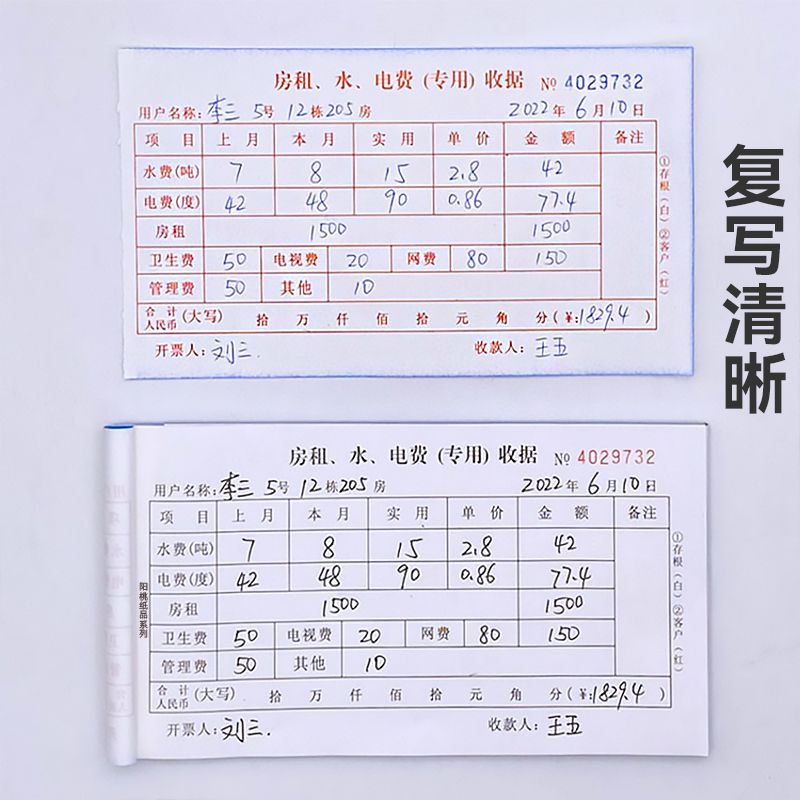 房租、水、电费(专用)收据 № 4029732
用户名称:李三 5号 12栋205房 2022年6月10日
项 目 上 月 本 月 实 用 单 价 金 额 备注
水费(吨) 7 8 15 2.8 42
电费(度) 42 48 90 0.86 77.4
房租 1500 1500
卫生费 50 电视费 20 网费 80 150
管理费 50 其他 10
合 计 人民币 (大写) 拾 万 仟 佰 拾 元 角 分(¥:1829.4)
开票人:刘三. 收款人:王五
①存根(白)②客户(红)
复写清晰
房租、水、电费(专用)收据 № 4029732
用户名称:李三 5号 12栋205房 2022年6月10日
项 目 上 月 本 月 实 用 单 价 金 额 备注
水费(吨) 7 8 15 2.8 42
电费(度) 42 48 90 0.86 77.4
房租 1500 1500
卫生费 50 电视费 20 网费 80 150
管理费 50 其他 10
合 计 人民币 (大写) 拾 万 仟 佰 拾 元 角 分(¥:1829.4)
开票人:刘三. 收款人:王五
①存根(白)②客户(红)
阳桃纸品系列